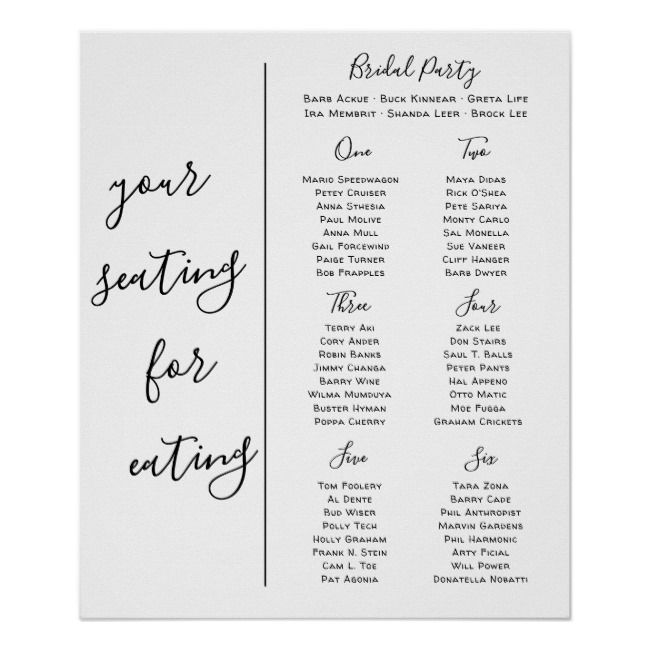 your
seating
for
eating
Bridal Party
Barb Ackue · Buck Kinnear · Greta Life
Ira Membrit · Shanda Leer · Brock Lee
One
Mario Speedwagon
Petey Cruiser
Anna Sthesia
Paul Molive
Anna Mull
Gail Forcewind
Paige Turner
Bob Frapples
Two
Maya Didas
Rick O'Shea
Pete Sariya
Monty Carlo
Sal Monella
Sue Vaneer
Cliff Hanger
Barb Dwyer
Three
Terry Aki
Cory Ander
Robin Banks
Jimmy Changa
Barry Wine
Wilma Mumduya
Buster Hyman
Poppa Cherry
Four
Zack Lee
Don Stairs
Saul T. Balls
Peter Pants
Hal Appeno
Otto Matic
Moe Fugga
Graham Crickets
Five
Tom Foolery
Al Dente
Bud Wiser
Polly Tech
Holly Graham
Frank N. Stein
Cam L. Toe
Pat Agonia
Six
Tara Zona
Barry Cade
Phil Anthropist
Marvin Gardens
Phil Harmonic
Arty Ficial
Will Power
Donatella Nobatti